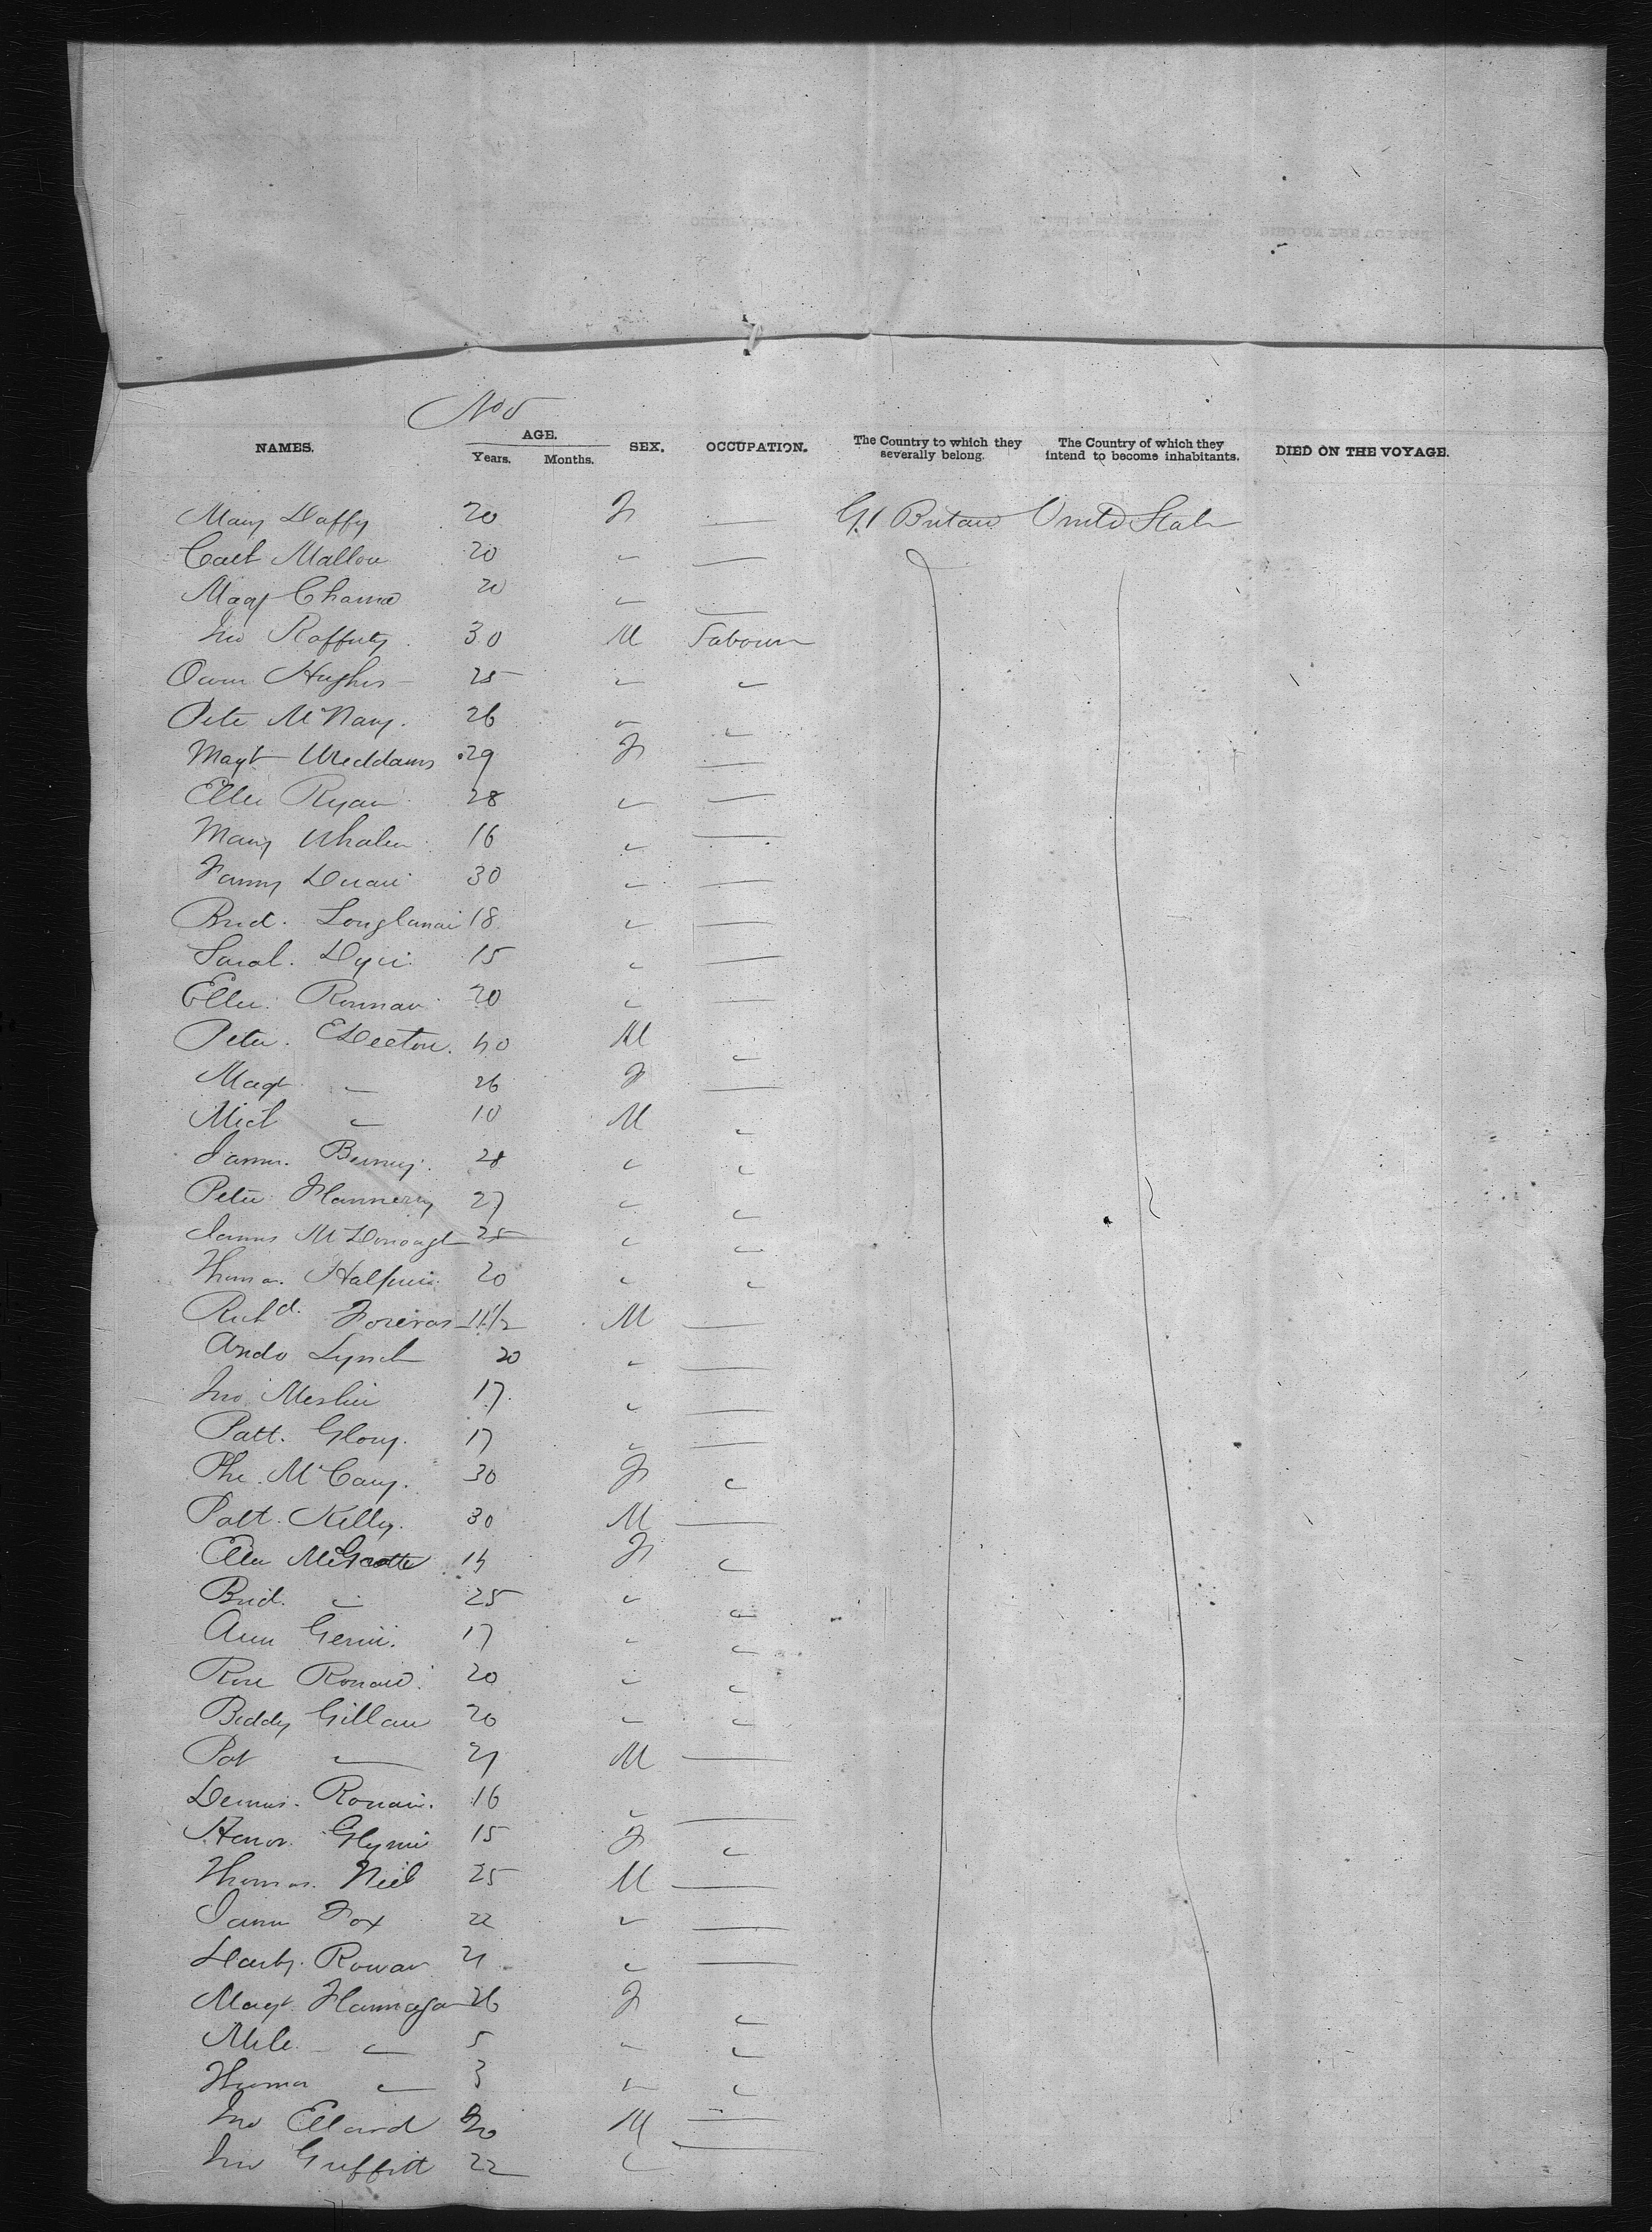 No 5
NAMES. AGE. SEX. OCCUPATION. The Country to which they severally belong. The Country of which they intend to become inhabitants. DIED ON THE VOYAGE.
Years. Months.
Mary Daffy 20 F — Gt Britain United States
Cath Mallon 20 " —
Magt 20 " —
Jno Rafferty 30 M Labourer
Owen Hughes 25 " "
Peter McNary 26 " "
Magt Weddams 29 F —
Ellen Ryan 28 " —
Mary Whalen 16 " —
Fanny 30 " —
Brid. 18 " —
Sarah 15 " —
Ellen Ronnan 20 " —
Peter. 40 M "
Magt — 26 F —
Mich " 10 M "
James 28 " "
Peter Flannery 27 " "
James McDonogh 25 " "
Thomas Halpin 20 " "
Richd. 11 1/2 M —
Andw Lynch 20 " —
Jno 17 " —
Patt. Glory. 17 " —
McCary. 30 F "
Patt. Kelly. 30 M —
Ellen 14 F "
Brid. " 25 " "
Ann 17 " "
Rose 20 " "
Biddy Gillan 20 " "
Pat — 21 M —
Dennis. 16 " —
Honor. Glynn 15 F "
Thomas. Neil 25 M —
James Fox 22 " —
Darby. Rowan 21 " —
Magt Flannagan 26 F "
" 5 " "
Thomas " 3 " "
Jno Ellard 20 M —
Jno Griffitt 22 " —